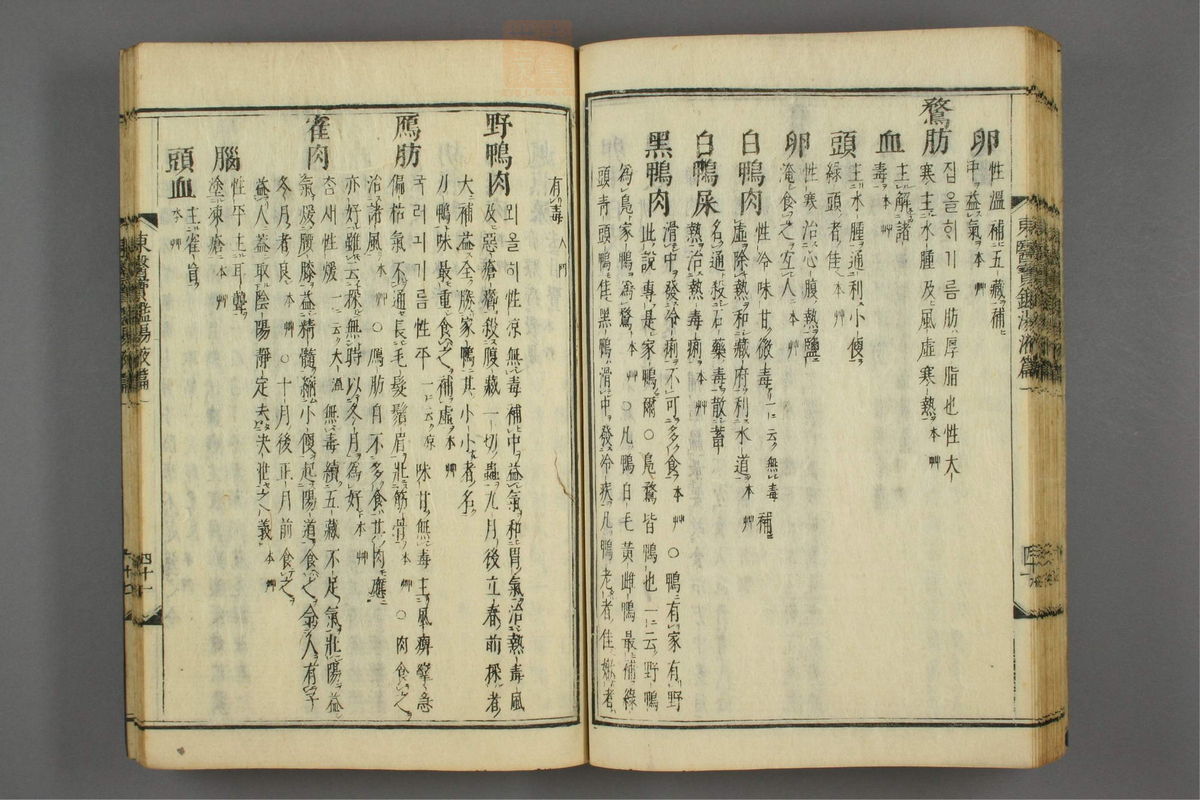 卵 性溫補五藏補
中益氣 本艸
鶩肪 집올희기름肪厚脂也性大
寒主水腫及風虛寒熱 本艸
血 主解諸
毒 本艸
頭 主水腫通利小便
綠頭者佳 本艸
卵 性寒治心腹熱鹽
淹食之宜人 本艸
白鴨肉 性冷味甘微毒一云無毒補
虛除熱和藏府利水道 本艸
白鴨屎 名通殺石藥毒散蓄
熱治熱毒痢 本艸
黑鴨肉 滑中發冷痢不可多食 本艸 ○鴨有家有野
此說專是家鴨爾○鳧鶩皆鴨也一云野鴨
爲鳧家鴨爲鶩 本艸 ○凡鴨白毛黃雌鴨最補綠
頭靑頭鴨佳黑鴨滑中發冷疾凡鴨老者佳嫩者
有毒 入門
野鴨肉 뫼올히性涼無毒補中益氣和胃氣治熱毒風
及惡瘡癤殺腹藏一切蟲九月後立春前採者
大補益全勝家鴨其小小者名
刀鴨味最重食之補虛 本艸
鴈肪 긔려기기름性平一云涼味甘無毒主風痺攣急
偏枯氣不通長毛髮鬚眉壯筋骨 本艸 ○肉食之
治諸風 本艸 ○鴈肪自不多食其肉應
亦好雖云採無時以冬月爲好 本艸
雀肉 참새性煖一云大溫無毒續五藏不足氣壯陽益
氣煖腰膝益精髓縮小便起陽道食之令人有子
冬月者良 本艸 ○十月後正月前食之
益人益取陰陽靜定未決泄之義 本艸
腦 性平主耳聾
塗凍瘡 本艸
頭血 主雀盲
本艸
東醫寶鑑湯液篇一
四十一
東醫寶鑑湯液篇一